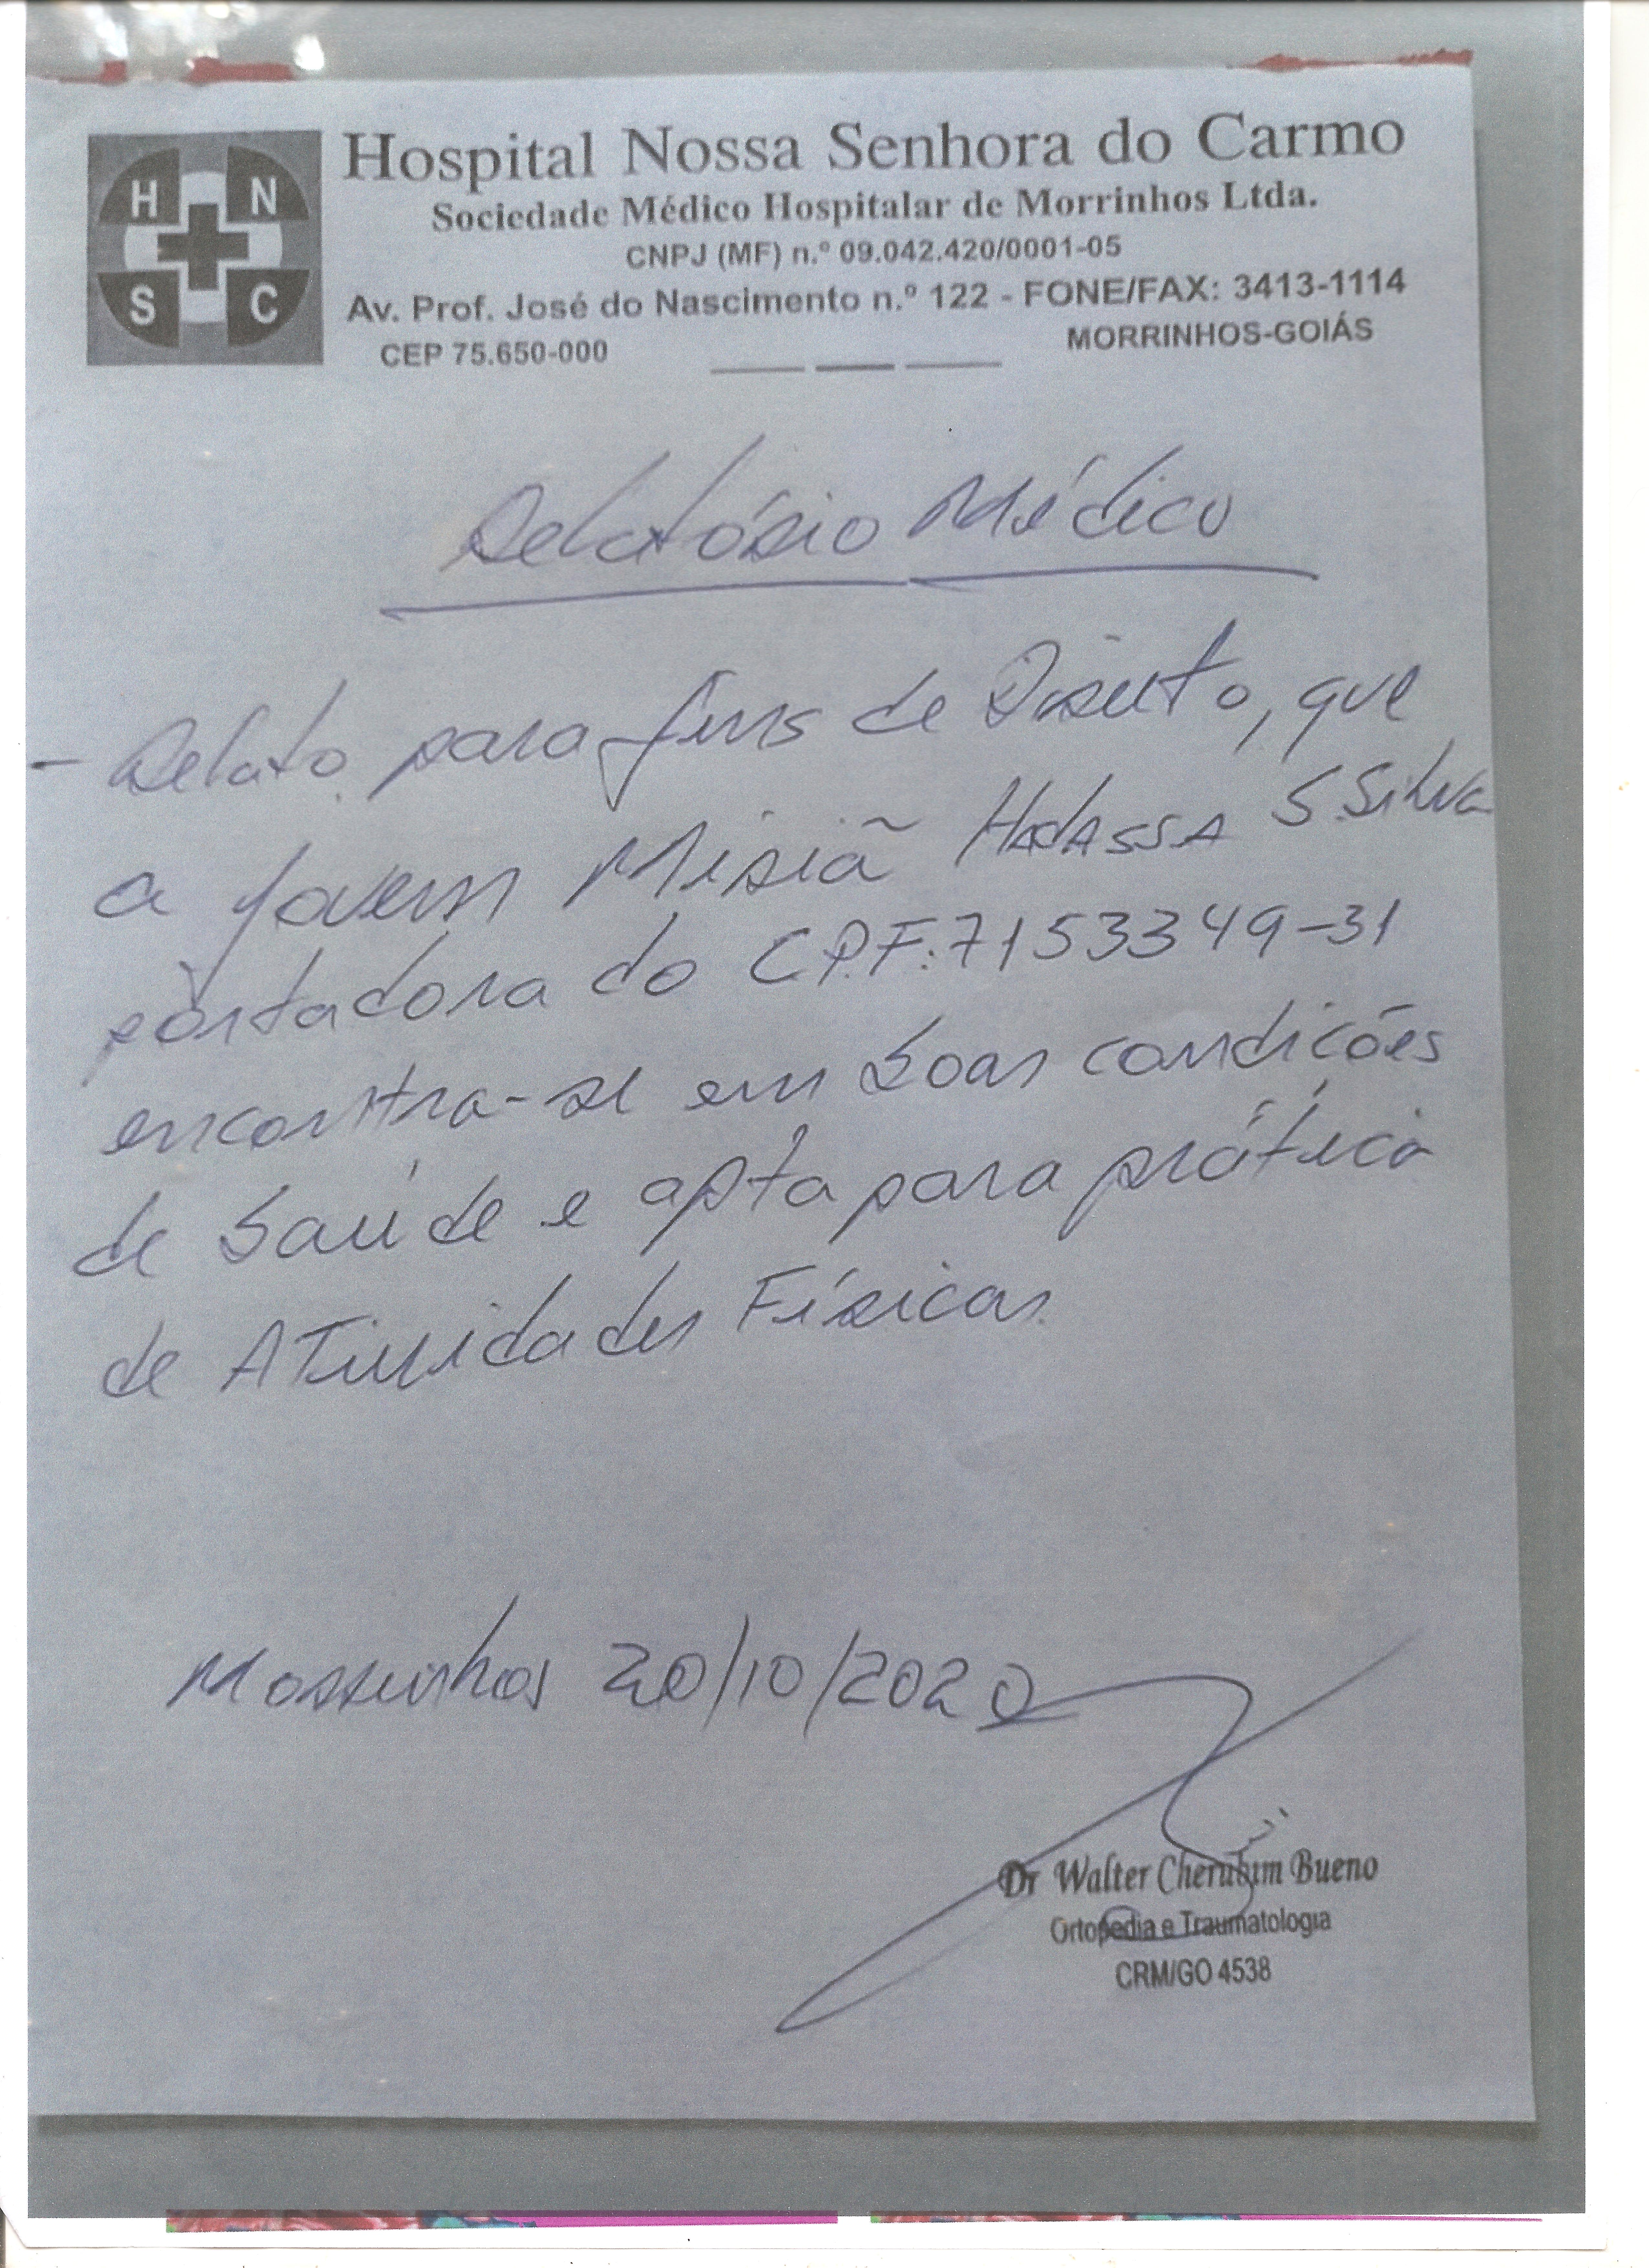 H N
S C
Hospital Nossa Senhora do Carmo
Sociedade Médico Hospitalar de Morrinhos Ltda.
CNPJ (MF) n.º 09.042.420/0001-05
Av. Prof. José do Nascimento n.º 122 - FONE/FAX: 3413-1114
CEP 75.650-000 MORRINHOS-GOIÁS
Relatório Médico
- Relato para fins de Direito, que
a jovem Miriã Hadassa S Silva
portadora do C.P.F: 7153349-31
encontra-se em boas condições
de saúde e apta para prática
de Atividades Físicas.
Morrinhos 20/10/2020
Dr Walter Cherubim Bueno
Ortopedia e Traumatologia
CRM/GO 4538